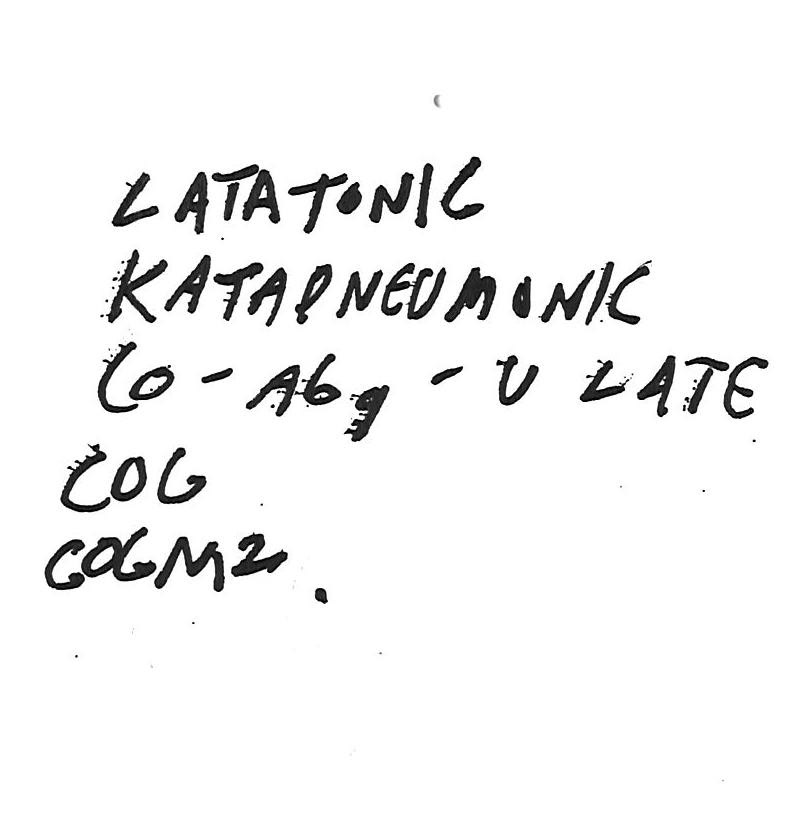 LATATONIC
KATAPNEUMONIC
CO-AGg-U LATE
COG
COGNZ.